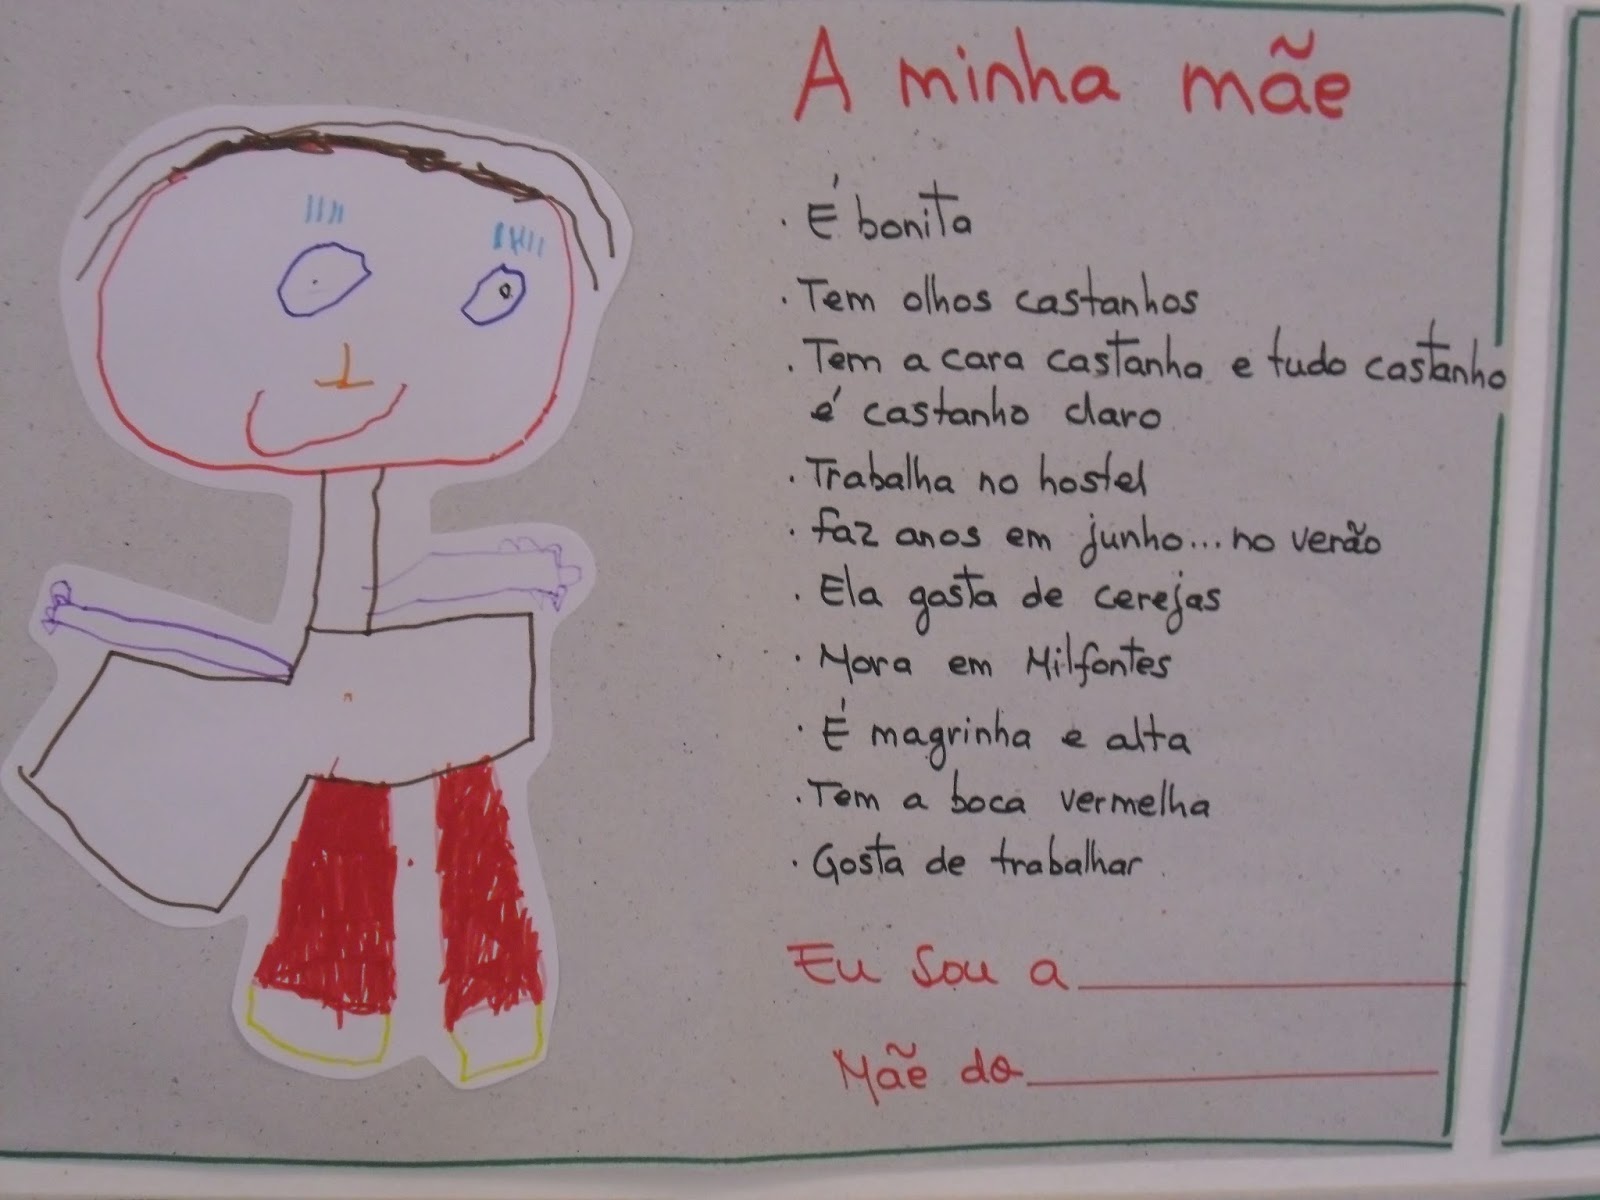 A minha mãe
. É bonita
. Tem olhos castanhos
. Tem a cara castanha e tudo castanho
é castanho claro
. Trabalha no hostel
. faz anos em junho... no verão
. Ela gosta de cerejas
. Mora em Milfontes
. É magrinha e alta
. Tem a boca vermelha
. Gosta de trabalhar
Eu sou a
Mãe do